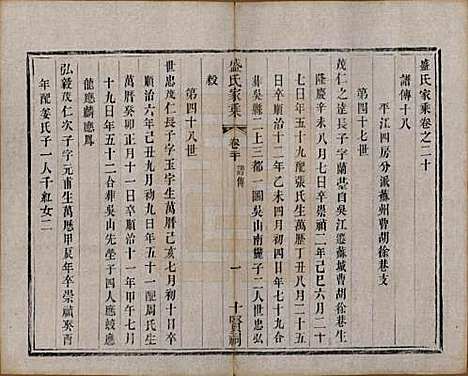 盛氏家乘卷之三十
譜傳十八
平江四房分派蘇州曹胡徐巷支
第四十七世
茂仁之達長子字蘭雲自吳江遷蘇城曹胡徐巷生
隆慶辛未八月七日卒崇禎二年己巳六月二十
日年五十九配張氏生萬曆丁丑八月二十五
日卒順治十二年乙未四月初七日年七十九合
葬吳縣二上三都一圖吳山南麓子二人世忠弘
毅
盛氏家乘
卷三十
譜傳
一
十賢祠
第四十八世
世忠茂仁長子字玉宇生萬曆己亥七月初十日卒
順治六年己丑初九日年五十一配周氏生
萬曆癸卯正月十一日卒順治十一年甲午七月
十九日年五十二合葬吳山先塋子四人應蛟應
龍應麟應鳳
弘毅茂仁次子字元甫生萬曆甲辰年卒崇禎癸酉
年配姜氏子一人千紅女二